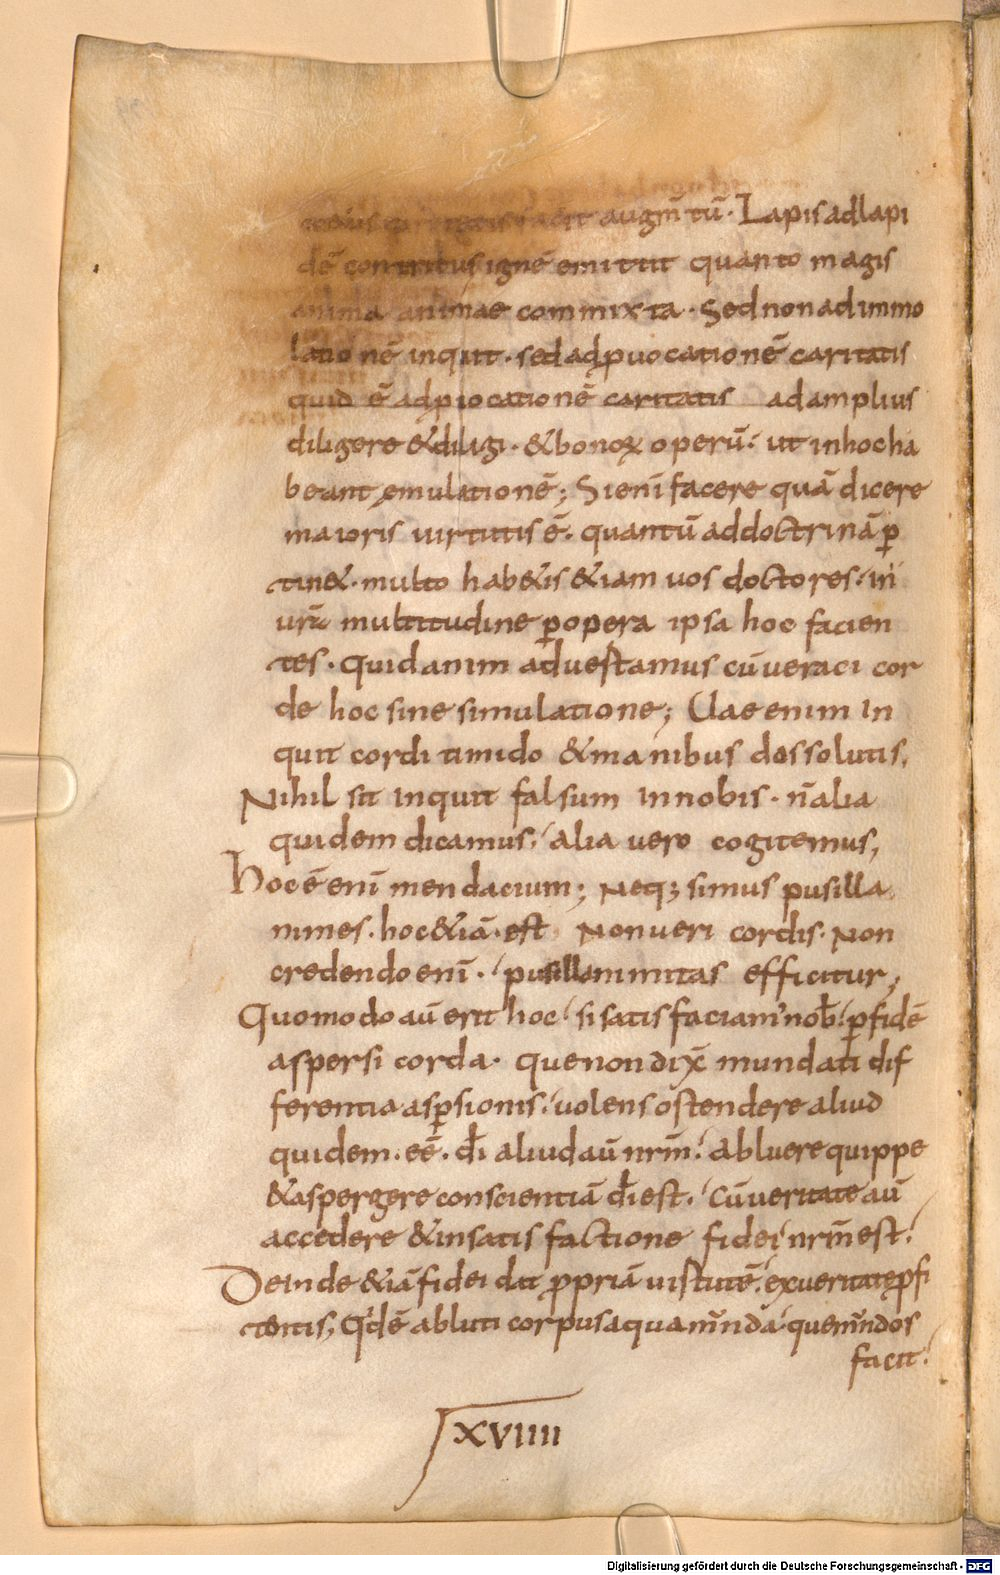 augm̄tū. Lapis ad lapi
dē contritus ignē emittit quanto magis
anima animae commixta. Sed non ad immo
lationē inquit. sed ad ꝓuocationē caritatis
quid ē ad ꝓuocationē caritatis ad amplius
diligere & diligi. & bonoꝝ operū: ut in hoc ha
beant emulationē; Si enī facere quā dicere
maioris uirtutis ē. quantū ad doctrinā ꝑ
tin&. multo hab&is &iam uos doctores: in
urā multitudine ꝑ opera ipsa hoc facien
tes. quid anim aduestamus cū ueraci cor
de hoc sine simulatione; Uae enim in
quit cordi timido & manibus dissolutis,
Nihil sit inquit falsum in nobis. n̄ alia
quidem dicamus: alia uero cogitemus,
hoc ē enī mendacium; Neq; simus pusilla
nimes. hoc &iā. est Non ueri cordis. Non
credendo enī. pusillanimitas efficitur;
Quomodo aū erit hoc: si satisfaciam' nob̄: ꝑ fidē
aspersi corda. que non dix̄ mundati dif
ferentia asꝑsionis: uolens ostendere aliud
quidem. eē. dī aliud aū nrm̄: abluere quippe
& aspergere conscientiā dī est. Cū ueritate aū
accedere & in satisfactione fidei nrm̄ est:
Deinde &iā fidei dat ꝓpriā uistutē: ex ueritate ꝓfi
tentis, Qd' ē abluti corpus aqua mūnda quem̄ndos
facit:
XVIIII
Digitalisierung gefördert durch die Deutsche Forschungsgemeinschaft - DFG